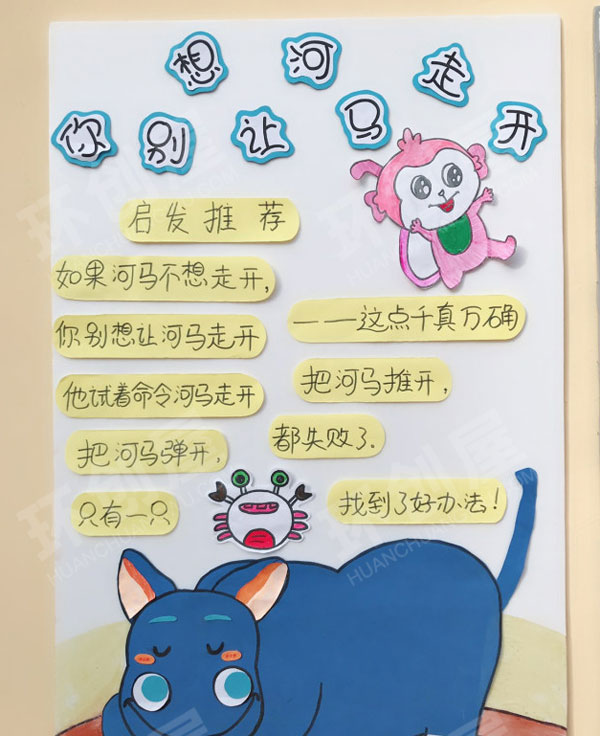 想河走
你别让马开
启发推荐
如果河马不想走开，
你别想让河马走开
——这点千真万确
他试着命令河马走开
把河马推开，
把河马弹开，
都失败了.
只有一只
找到了好办法！
环创屋
HUANCHUANGWU.COM